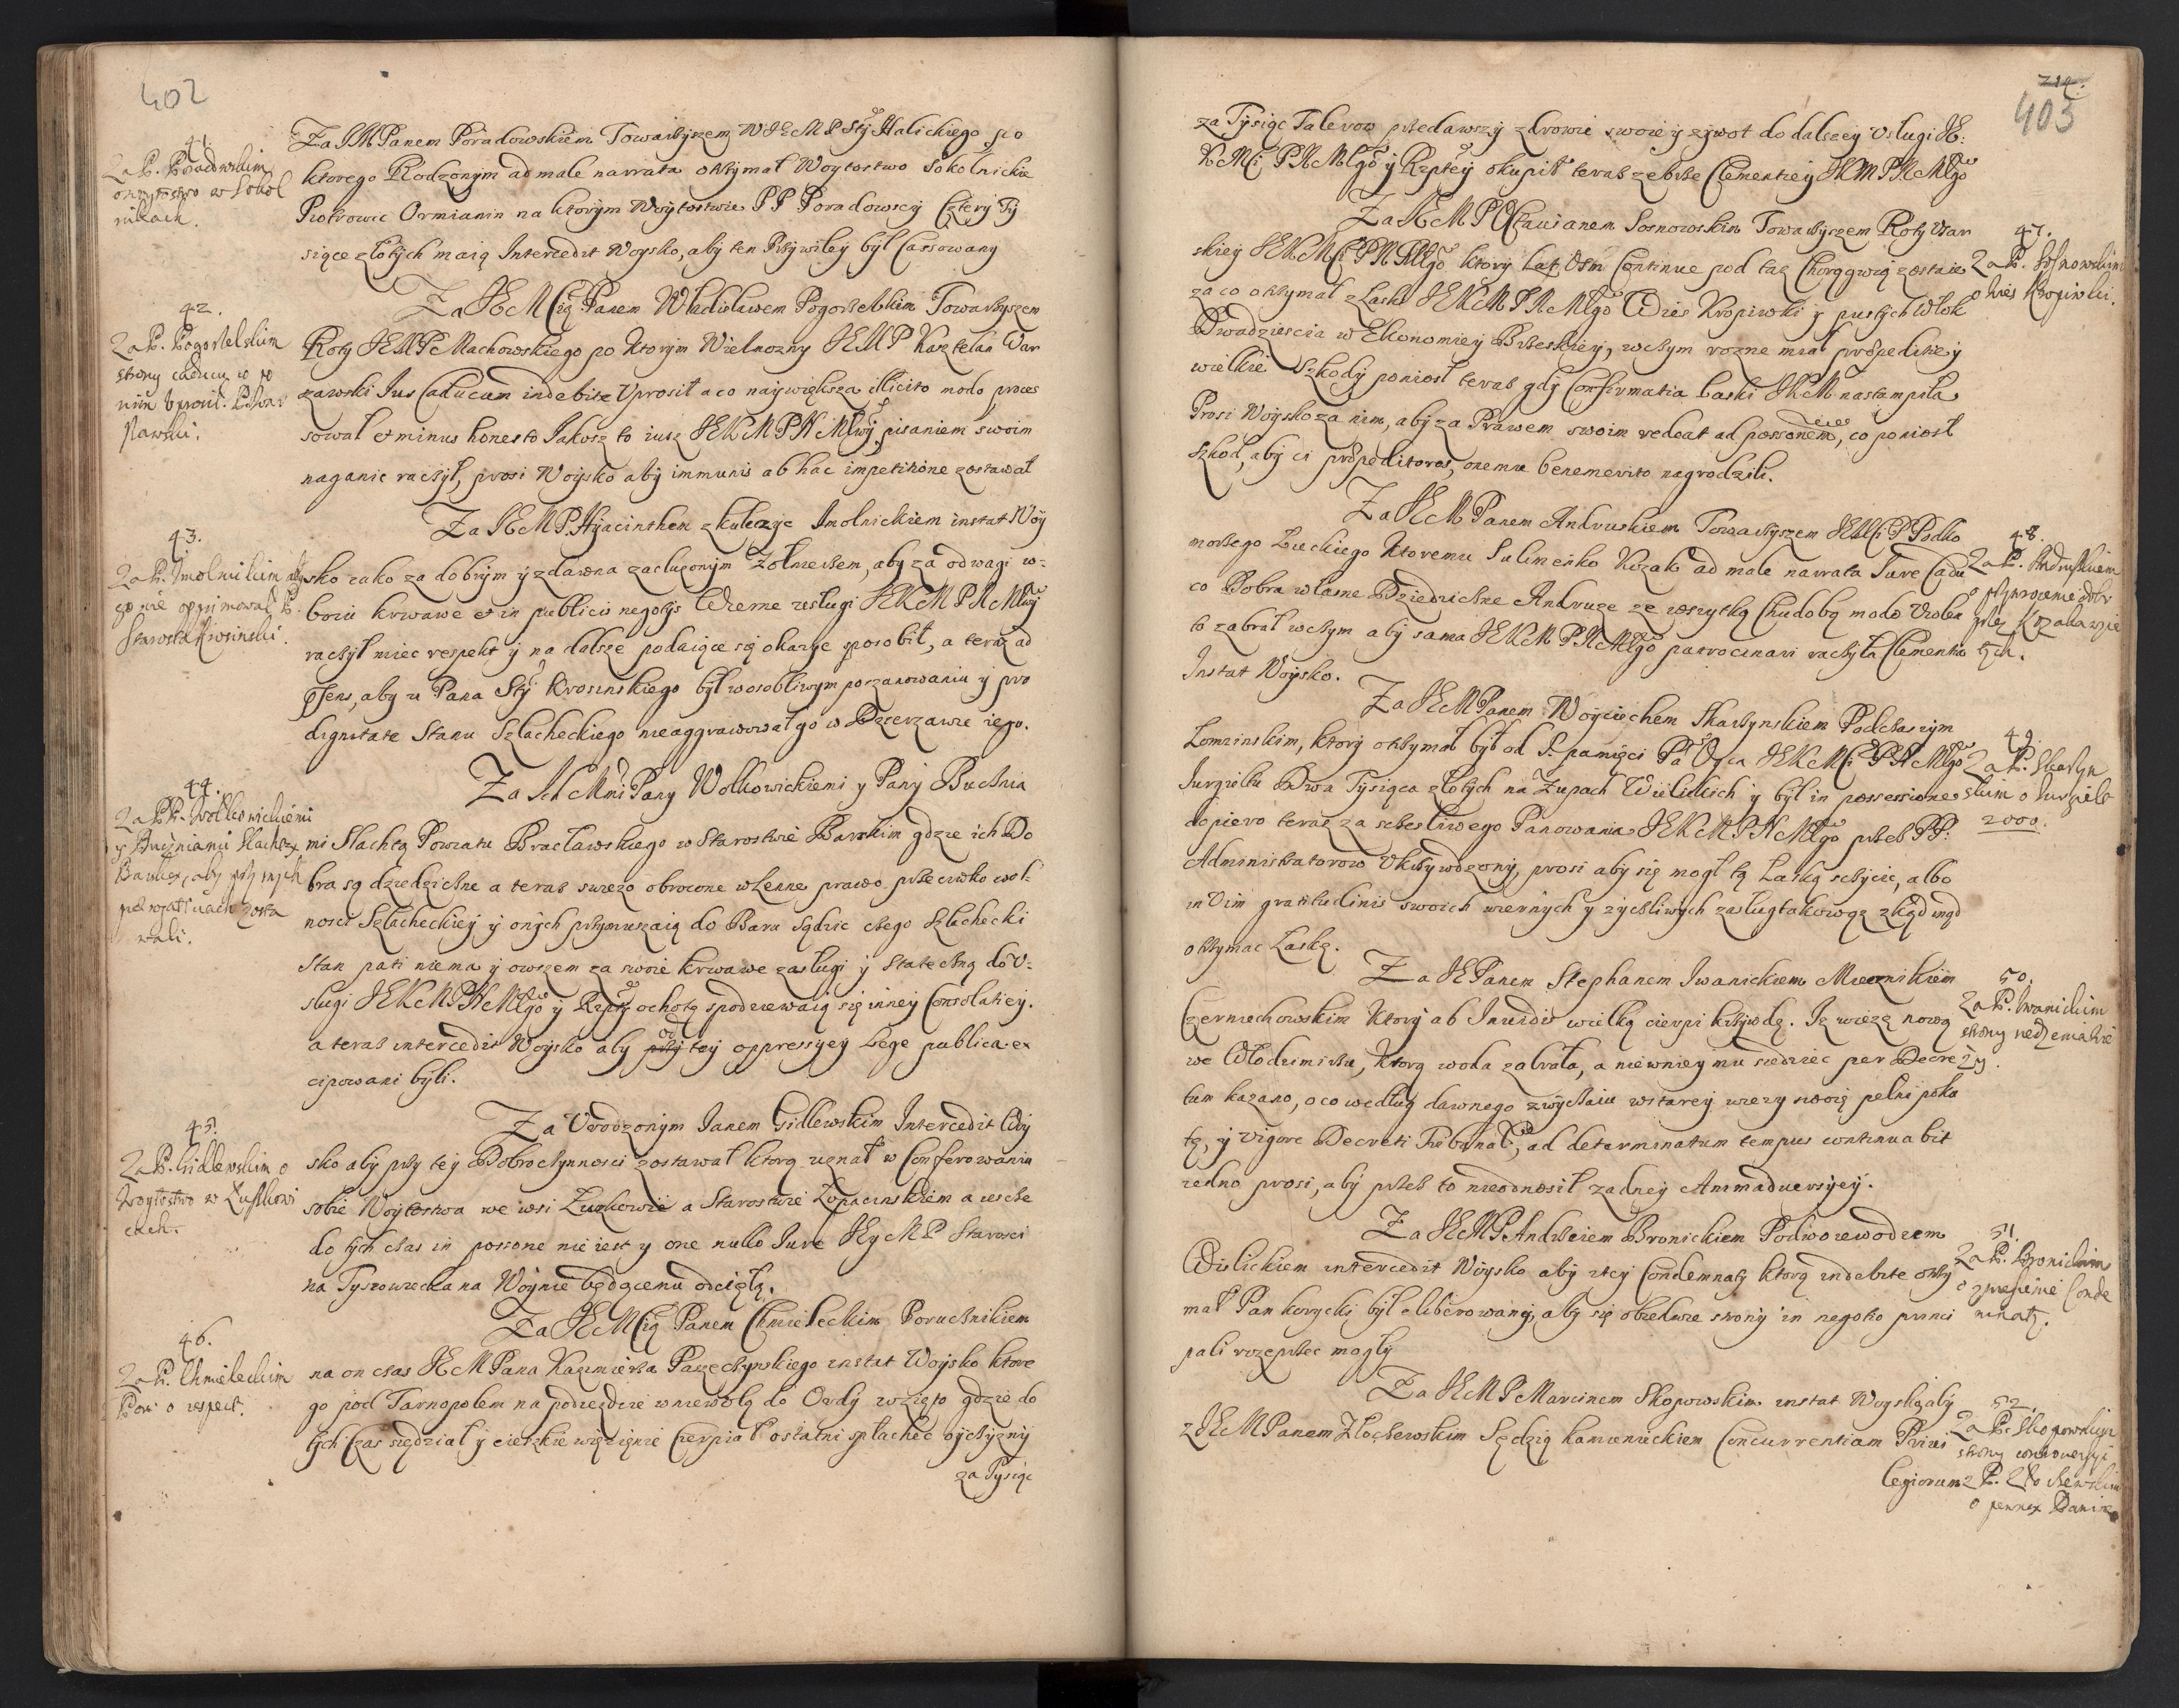 402
41.
Za P. Poradowskim
o woytostwo w Sokol
nikach.
Za JM Panem Poradowskiem Towarzyszem WJEMP Sty Halickiego, po
ktorego Rodzonym ad male narrata otrzymał Woytostwo Sokolnickie
Piotrowic Ormianin na ktorym Woytostwie PP Poradowscy Cztery Ty
siące złotych maią Intercedit Woysko, aby ten Przywiley był Cassowany
42.
Za P. Pogorzelskim
strony caducu o po
nim uprosił P. War
szawski.
Za JEMCią Panem Władisławem Pogorzelskim Towarzyszem
Roty JEMP Machowskiego po ktorym Wielmozny JEMP Kasztelan War
szawski Ius Caducum indebite Uprosił a co naywiększa illicito modo proces
sował et minus honesto Jakosz to iusz JEKMPNMłwy pisaniem swoim
naganic raczył, prosi Woysko aby immunis ab hac impetitione zostawał
43.
Za P. Imolnickim aby
go nie opprimował P.
Starosta Krosinski.
Za JEMP. Hyacinthem z kulczyc Imolnickiem instat Woy
sko iako za dobrym y zdawna zasluzonym Zołnierzem, aby za odwagi w
boiu krwawe et in publicis negotys Wierne usługi JEKMPNMłwy
raczył miec respekt y na dalsze podaiące się okazye sposobił, a teraz ad
psens, aby u Pana Sty Krosinskiego był w osobliwym poszanowaniu y pro
dignitate Stanu Szlacheckiego nieaggrawował go w Dzierzawie iego.
44.
Za PP. Wołkowickiemi
y Buczniami Slachtą
Barską, aby przy swych
prerogatiwach zosta
wali.
Za JchMmi Pany Wołkowickiemi y Pany Buchnia
mi Slachtą Powiatu Bracławskiego w Starostwie Barskim gdzie ich Do
bra są dziedziczne a teraz swiezo obrocone w Lenne prawo przeciwko wol-
nosci Szlacheckiey y onych przymuszaią do Bara sądzic czego szlachecki
Stan pati niema y owszem za swoie krwawe zasługi y stateczną do V-
sługi JEKMPNMłgo y Rzptey ochotę spodziewaią się inney Consolatiey.
a teraz intercedit Woysko aby przy od tey oppressyey Lege publica ex
cipowani byli.
45.
Za P. Gidlewskim o
Woytostwo w Łuszkowi
cach.
Za Urodzonym Janem Gidlewskim Intercedit Woy
sko aby przy tey Dobroczynnosci zostawał ktorą uznał w Conferowaniu
sobie Woytostwa we wsi Łuzkowie a Starostwie Łopacinskiem a iescze
do tych czas in possone nie iest y one nullo Iure JEyMP Starosci
na Tyszowiecka na Woynie będącemu odcięła.
46.
Za P. Chmieleckim
Por: o respect.
Za JEMCią Panem Chmieleckim Porucznikiem
na on czas JEM Pana Kazimierza Paszczynskiego instat Woysko ktore
go pod Tarnopolem na podiezdzie w niewolą do Ordy wzięto gdzie do
tych Czas siędział y cieszkie więzięnie Cierpiał ostatni szlachec oyczyzny
za Tysiąc
403
za Tysiąc Talerow przedawszy zdrowie swoie y zywot do dalszey Usługi JE:
KMCi PNMłgo y Rzptey okupił teraz zebrze Clementiey JKMPNMłgo
47.
Za P. Sosnowskim
o Wies Kropiwki.
Za JEMP Oktawianem Sosnowskim Towarzyszem Roty Usar
skiey JEKMCi PNMłgo ktory Lat Osm Continue pod tąz Chorągwią zostaie
za co otrzymał z Łaski JEKMPNMłgo Wies Kropiwki y pustych Włok
Dwadziescia w Ekonomiey Brzeskiey, w czym rozne miał prepeditiey
wielkie Szkody poniosł teraz gdy Confirmatia Łaski JKM nastąmpiła
Prosi Woysko za nim, aby za Prawem swoim redeat ad possonem, co poniosł
szkod, aby ci prepeditores, onemu benemerito nagrodzili.
48.
Za P. Andruskiem
o przywrocenie dobr
przez Kozaka wzię
tych.
Za JEM Panem Andruskiem Towarzyszem JEMCi P Podko
morzego Łuckiego ktoremu Sulimenko Kozak ad male narrata Iure Cadu
co Dobra własne Dziedziczne Andruze ze wszytką Chudobą modo Violen
to zabrał w czym aby sama JEKMPNMłgo patrocinari raczyła Clementia
Instat Woysko.
49.
Za P. Skarzyn
skim o Iurgielt
2000.
Za JEM Panem Woyciechem Skarzynskiem Podczaszym
Łomzinskim, ktory otrzymał był od S. pamięci Pa Oyca JEKMCi PNMłgo
Iurgieltu Dwa Tysiąca złotych na Zupach Wielickich y był in possessione
dopiero teraz za sczesliwego Panowania JEKMPNMłgo przez PP:
Administratorow Ukrzywdzony, prosi aby się mogł tą Łaską sczycic, albo
in Vim gratitudinis swoich wiernych y zyczliwych zasług takowąz zkąd inąd
otrzymac Łaskę.
50.
Za P. Iwanickim
strony siedzenia wie
zy.
Za JE Panem Stephanem Iwanickiem Miecznikiem
Czerniechowskim ktory ab Inuidis wielką cierpi krzywdę. Iz wiezę nową
we Włodzimirzu, ktorą woda zabrała, a nie w niey mu siedziec per Decre
tum kazano, o co według dawnego zwyczaiu w starey wiezy swoię pełni poku
tę, y vigore Decreti Tribunalis, ad determinatum tempus continuabit
iedno prosi, aby przez to nieodnosił zadney Animaduersyey.
51.
Za P. Bronickim
o zniesienie Conde
mnaty.
Za JEMP Andrzeiem Bronickiem Podwoiewodzem
Wislickiem intercedit Woysko aby z tey Condemnaty ktorą indebite otrzy
mał Pan korycki był eliberowany, aby się obiedwie strony in negotio princi
pali rozeprzec mogły
52.
Za P. Skopowskim
strony controuersyi
z P. Złoczewskim
o pewną Daninę
Za JEMP Marcinem Skopowskim instat Woysko, aby
z JEM Panem Złoczewskim Sędzią kamienieckiem Concurrentiam Priui
legiorum